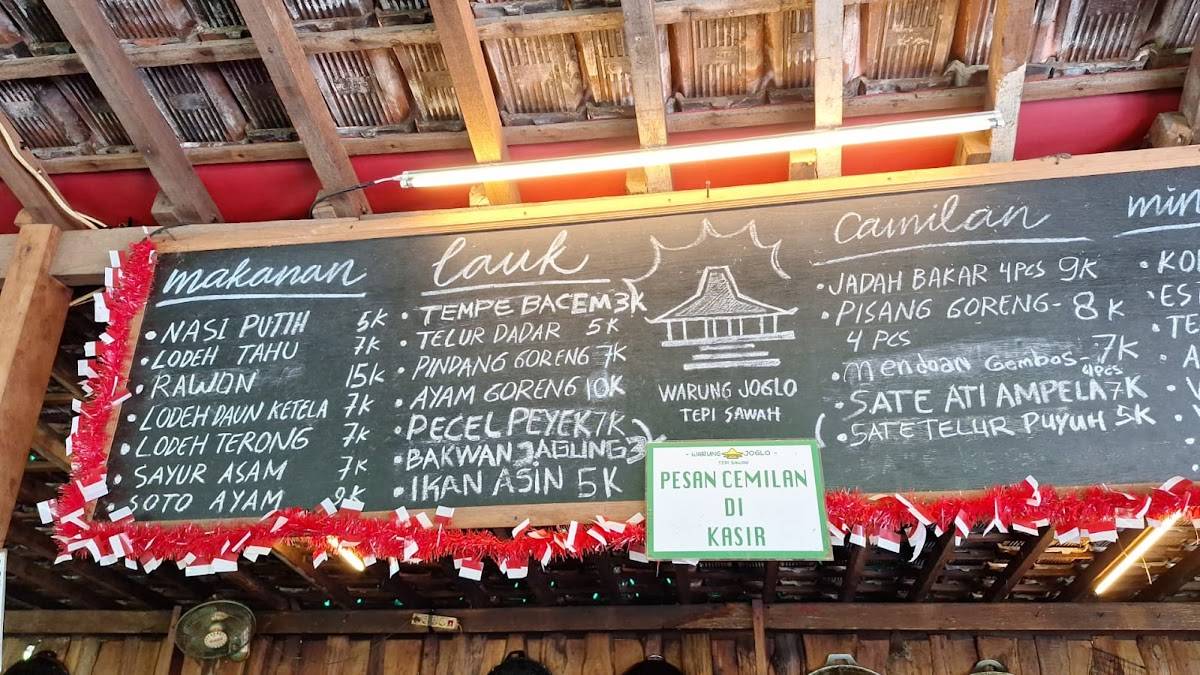 makanan
• NASI PUTIH 5K
• LODEH TAHU 7K
• RAWON 15K
• LODEH DAUN KETELA 7K
• LODEH TERONG 7K
• SAYUR ASAM 7K
SOTO AYAM
lauk
• TEMPE BACEM 3K
• TELUR DADAR 5K
• PINDANG GORENG 7K
• AYAM GORENG 10K
• PECEL PEYEK 7K
• BAKWAN JAGUNG 3
• IKAN ASIN 5K
WARUNG JOGLO
TEPI SAWAH
- WARUNG JOGLO -
TEPI SAWAH
PESAN CEMILAN
DI
KASIR
Camilan
• JADAH BAKAR 4PCS 9K
• PISANG GORENG - 8K
4 PCS
• mendoan Gembos - 7K
4PCS
• SATE ATI AMPELA 7K
• SATE TELUR PUYUH 5K
min
• KO
• ES
• TE